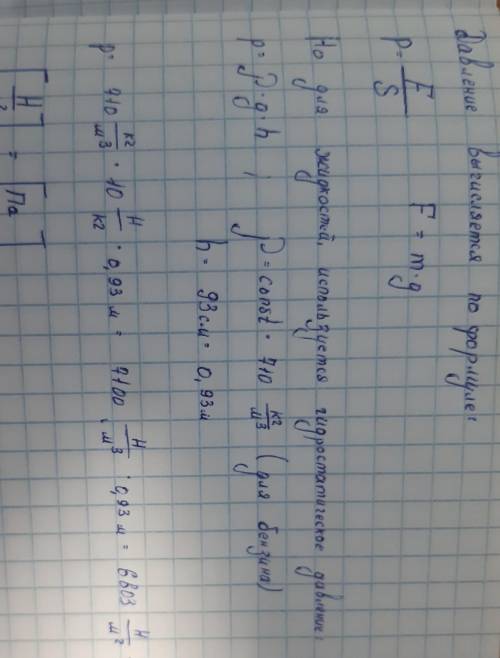 Давление вычисляется по формуле:
p = F/S F = m·g
Но для жидкостей, используется гидростатическое давление:
p = ρ·g·h ; ρ = const = 710 кг/м3 (для бензина)
h = 93 см = 0,93 м
p = 710 кг/м3 · 10 Н/кг · 0,93 м = 7100 Н/м3 · 0,93 м = 6603 Н/м2
[Н/2] = [Па]